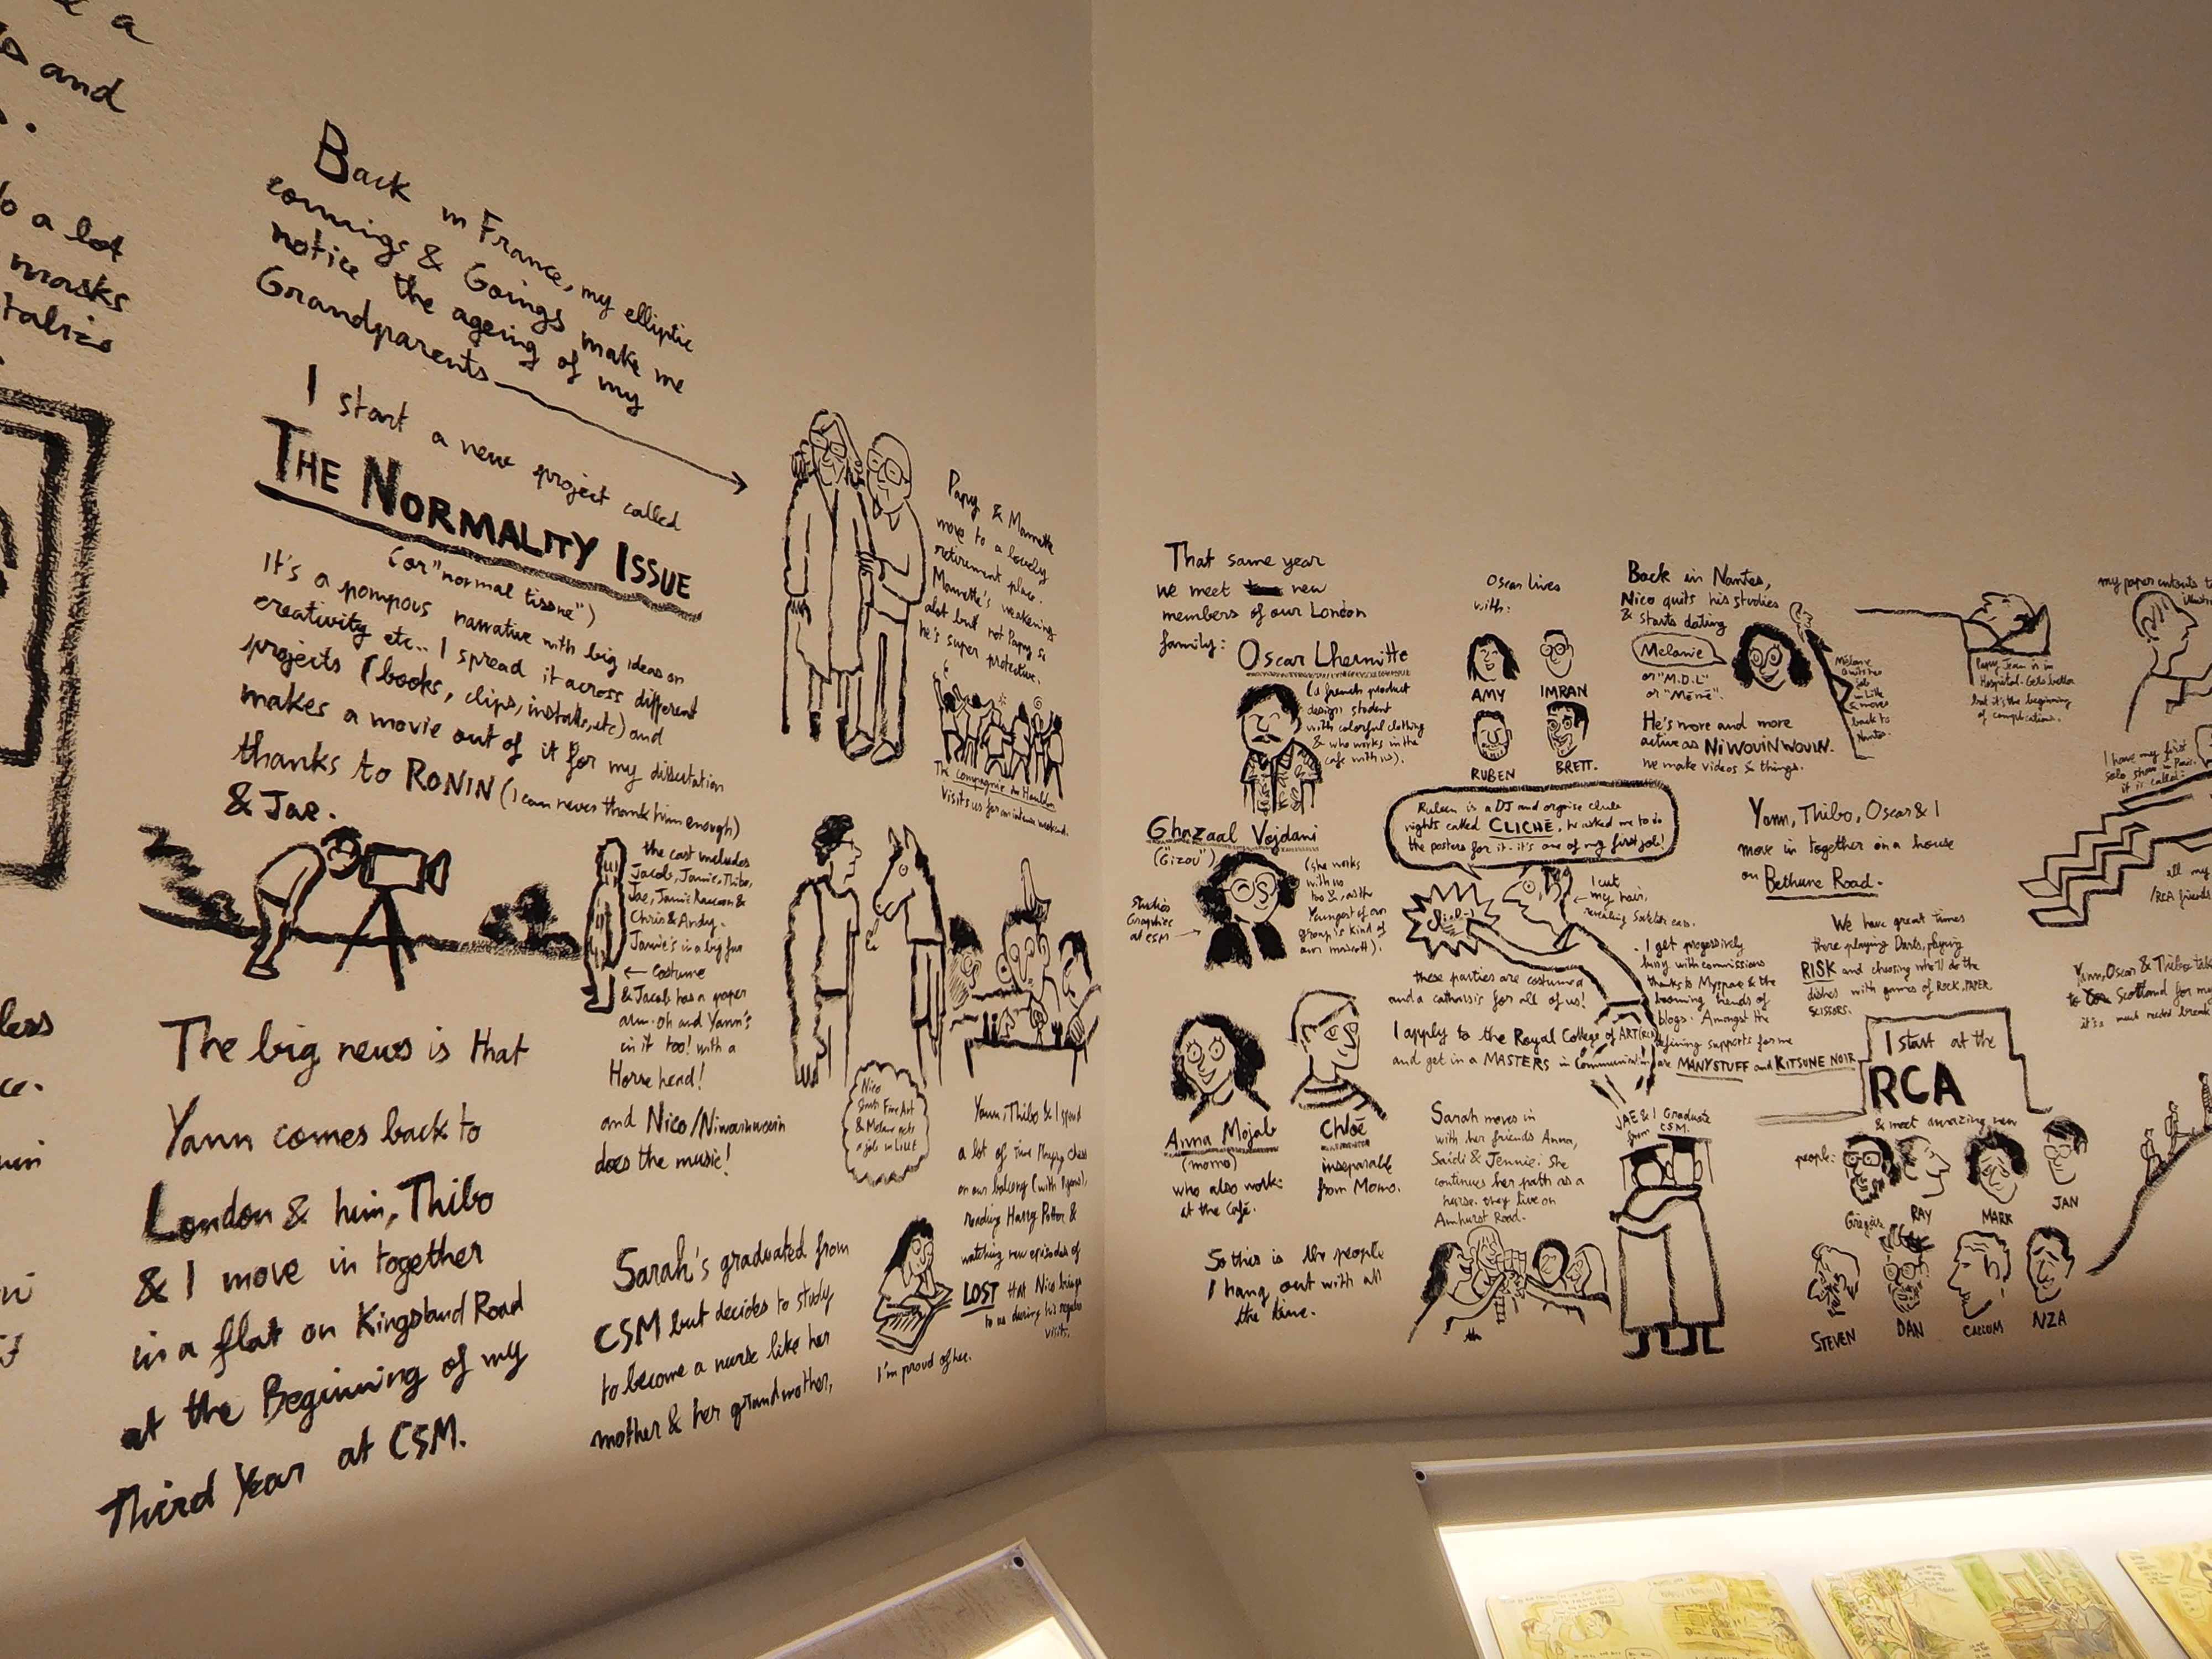 a
and
a lot
masks
Back in France, my elliptic
comings & Goings make me
notice the ageing of my
Grandparents
I start a new project called
THE NORMALITY ISSUE
(or "normal tissue")
It's a pompous narrative with big ideas on
creativity etc.. I spread it across different
projects (books, clips, installs, etc) and
makes a movie out of it for my dissertation
thanks to RONIN (I can never thank him enough)
& Jae.
Papy & Mamette
move to a lovely
retirement place.
Mamette's weakening
alot but not Papy &
he's super protective.
The compagnie du
visits us for an intense weekend.
the cast includes
Jacob, Jamie, Thibo,
Jae, Jamie Raccoon &
Chris & Andy.
Jamie's in a big fur
← Costume
& Jacob has a paper
arm. oh and Yann's
in it too! with a
Horse head!
and Nico/Niwouinwouin
does the music!
The big news is that
Yann comes back to
London & him, Thibo
& I move in together
in a flat on Kingsland Road
at the Beginning of my
Third Year at CSM.
Nico
Fine Art
& Melanie gets
a job in Lille
Yann, Thibo & I spend
a lot of time Playing chess
on our balcony (with
reading Harry Potter &
watching new episodes of
LOST that Nico brings
to us during his regular
visits.
Sarah's graduated from
CSM but decides to study
to become a nurse like her
mother & her grandmother,
I'm proud of her.
That same year
we meet new
members of our London
family:
Oscar Lhermitte
(a french product
design student
with colorful clothing
& who works in the
cafe with us).
Oscar lives
with:
AMY
IMRAN
RUBEN
BRETT.
Back in Nantes,
Nico quits his studies
& starts dating
Melanie
or "M.D.L"
or "Mémé".
He's more and more
active as NIWOUINWOUIN.
we make videos & things.
Mélanie
quits her
job
in Lille
& moves
back to
Nantes.
Papy Jean is in
Hospital. Gets better
but it's the beginning
of complications.
my paper cutouts
I have my first
solo show in Paris.
it is called:
Ghazaal Vojdani
("Gizou")
studies
Graphics
at CSM
(she works
with us
too & as the
Youngest of our
group's kind of
our mascott).
Ruben is a DJ and organise club
nights called CLICHÉ, he asked me to do
the posters for it. it's one of my first job!
I cut
my hair,
revealing
these parties are costumed
and a catharsis for all of us!
I apply to the Royal College of ART (RCA)
and get in a MASTERS in Communication
I get progressively
busy with commissions
thanks to Myspace & the
booming trends of
blogs. Amongst the
defining supports for me
are MANYSTUFF and KITSUNE NOIR
Yann, Thibo, Oscar & I
move in together on a house
on Bethune Road.
We have great times
there playing Darts, playing
RISK and choosing who'll do the
dishes with games of ROCK, PAPER,
SCISSORS.
all my
/RCA friends
Yann, Oscar & Thibo
to Scotland for my
it's a much needed break
I start at the
RCA
& meet amazing new
people:
Grégoire
RAY
MARK
JAN
STEVEN
DAN
CALLUM
NZA
Anna Mojab
(momo)
who also work
at the Café.
Chloé
inseparable
from Momo.
Sarah moves in
with her friends Anna,
Saidi & Jennie. She
continues her path as a
nurse. they live on
Amhurst Road.
JAE & I Graduate
from CSM.
So this is the people
I hang out with all
the time.